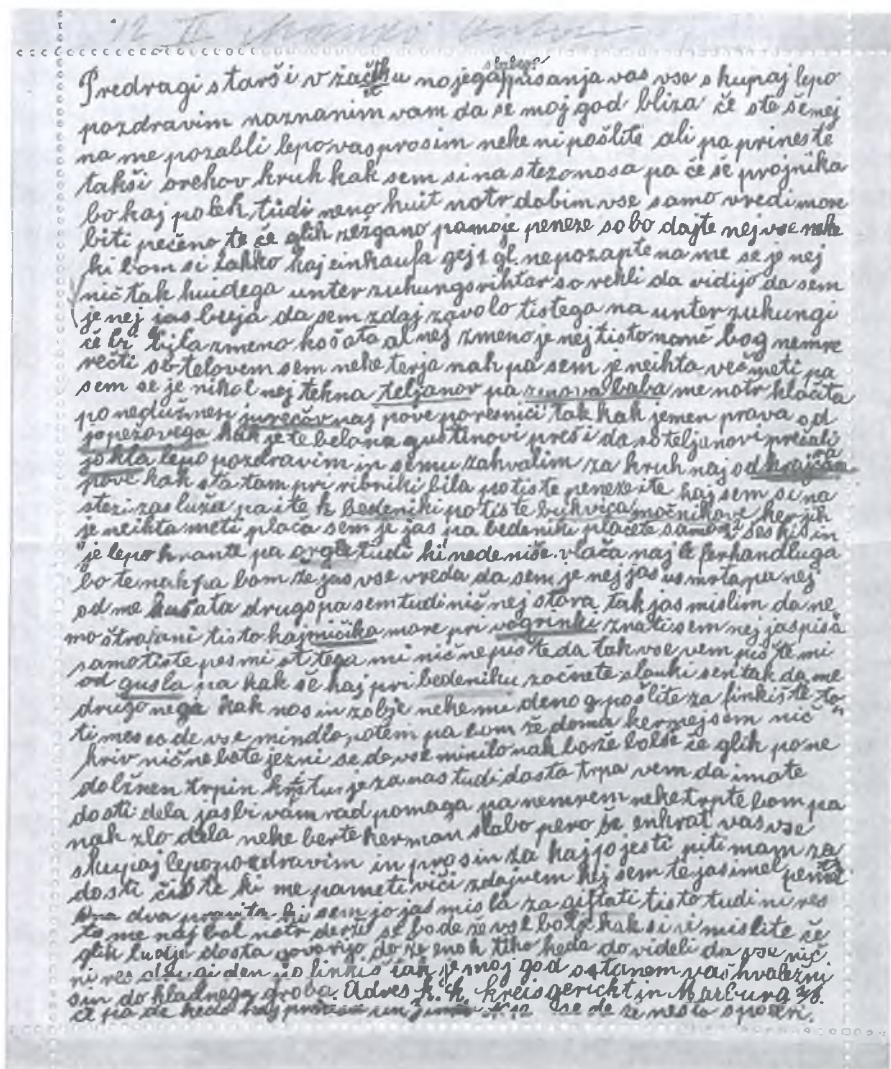 12 II
slabega
Predragi starši v začetku nojega pisanja vas vse skupaj lepo
pozdravim naznanim vam da se moj god bliza če ste še nej
na me pozabli lepo vas prosim neke ni pošlite ali pa prineste
takši orehov kruh kak sem si na stezo nosa pa če še projnika
bo kaj poleh tüdi neno huit notr dobim vse samo vredi more
biti pečeno te če glih zezgano pa moje peneze sobo dajte nej vse neke
ki bom si lahko kaj einkaufa gej 1 gl. ne pozapte na me se je nej
nič tak huidega unterzuhungsrihtar so rekli da vidijo da sem
je nej jas buja da sem zdaj zavolo tistega na unterzukungi
če bi bila zmeno košata al nej zmeno je nej tisto na me bog nemre
rečti sotelovem sem neke terja nah pa sem je neihta več meti pa
sem se je nikol nej tekna teljanov pa zenova baba me notr klačita
po nedužnen jurečov naj pove po resnici tak kak jemen prava od
jopežovega kak je te belana guštinovi preši da so teljanovi prečali
jokla lepo pozdravim in semu zahvalim za kruh naj od krajčara
pove kak sta tam pri ribniki bila po tiste peneze ite kaj sem si na
stezi zasluža pa ite k bedeniki po tiste bukvica močnikove ker jih
je neihta meti plača sem je jas pa bedeniki plačete samo
je lepo hrante pa orgle tudi ki nedeniše vlača naj le ferhandluga
bo te nak pa bom že jas vse vreda da sem je nej jas vsmrta pa nej
od me košata drugo pa sem tudi nič nej stora tak jas mislim da ne
mo štrafani tisto kaj mičika more pri vogrinki znati sem nej jas pisa
samo tiste pesmi et tega mi nič ne piste da tak vse vem piste mi
od gusla pa kak še kaj pri bedeniku začnete slauki sen tak da me
drugo nega kak nos in zobje neke me deno g. pošlite za finkište to
ti mesec de vse mindlo potem pa bom že doma ker nejsem nič
kriv nič ne bote jezni se de vse minilo nak borže bolše če glih po ne
dolžnen trpin krštuš je za nas tudi dosta trpa vem da imate
dosti dela jas bi vam rad pomaga pa nemrem neke trpte bom pa
nak zlo dela neke berte herman slabo pero še enkrat vas vse
skupaj lepo pozdravim in prosin za kaj jo jesti piti mam za
dosti či ste ki me pameti viči zdaj vem kej sem te jas imel
dva sem jo jas misla za giftati tisto tudi ni res
to me naj bol notr derži se bode že vse bolo kak si vi mislite če
glih ludje dosta govorijo do že enok tiho keda do videli da vse nič
ni res drugi den čak je moj god ostanem vaš hvaležni
sin do hladnega groba. Adres K. K. kreisgericht in Marburg
če pa de kedo kaj se de že nesto spočeri.